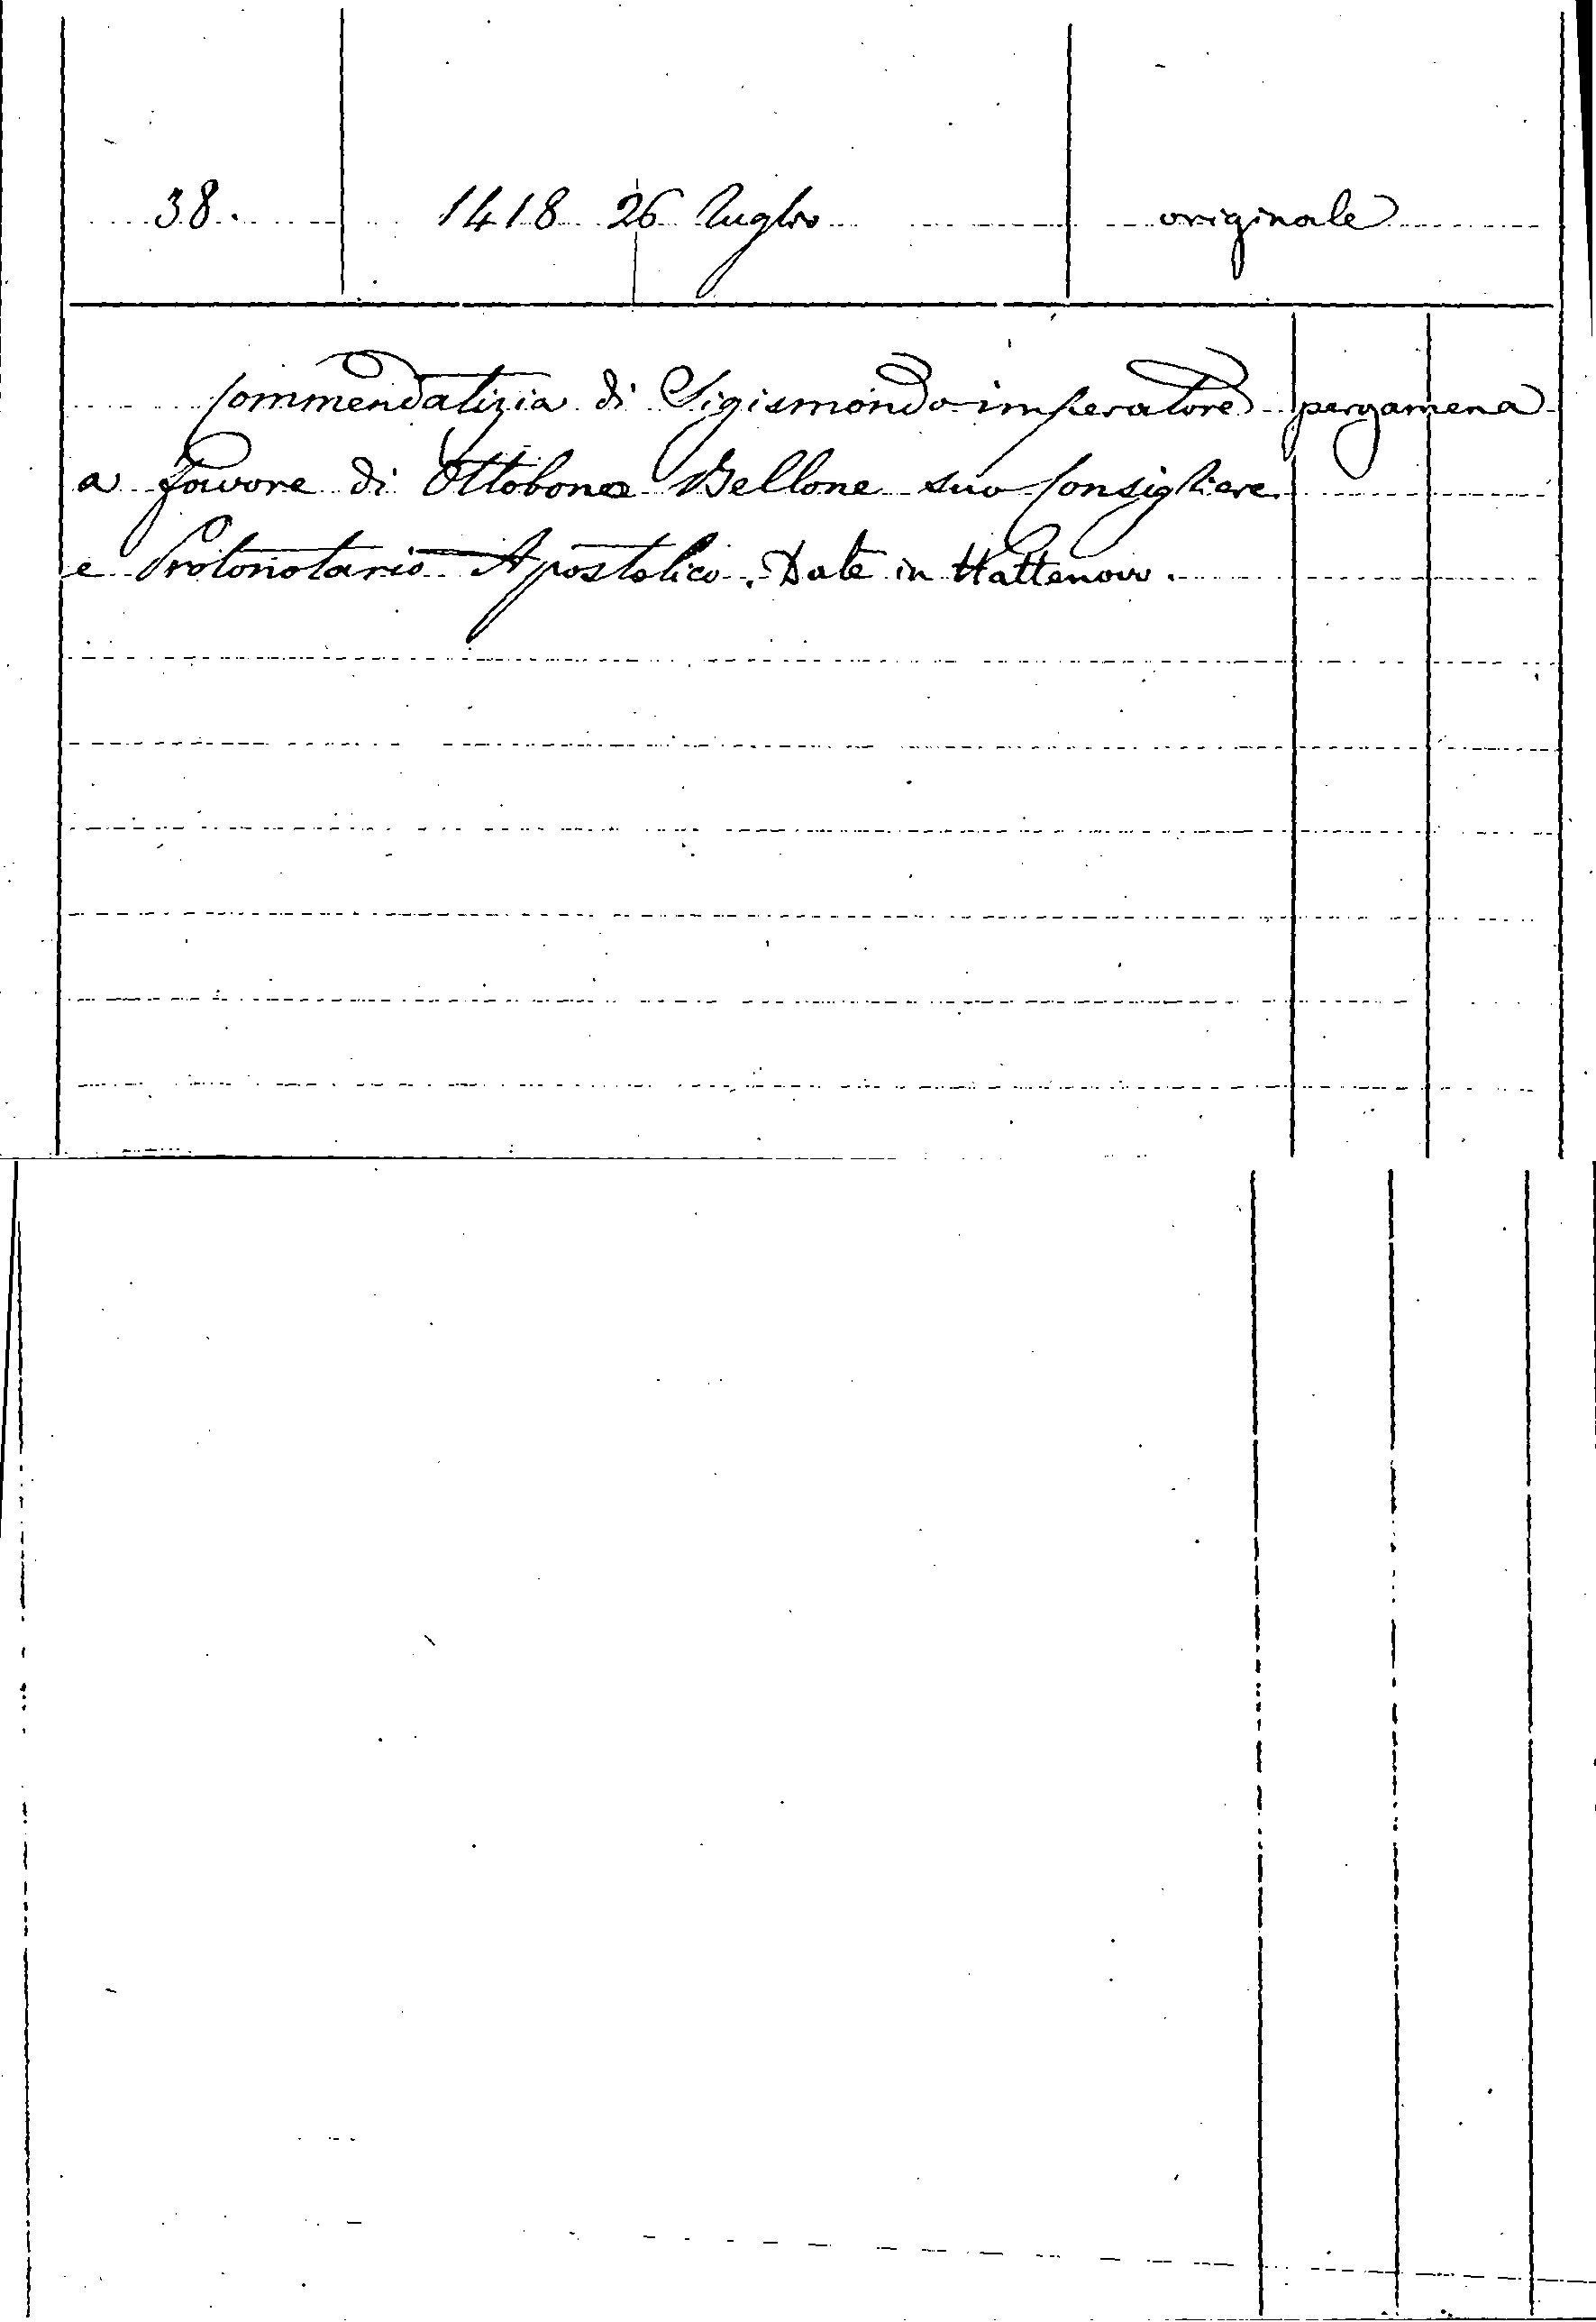 38. 1418 26 luglio originale
Commendatizia di Sigismondo imperatore pergamena
a favore di Ottobono Bellone suo Consigliere
e Protonotario Apostolico. Date in